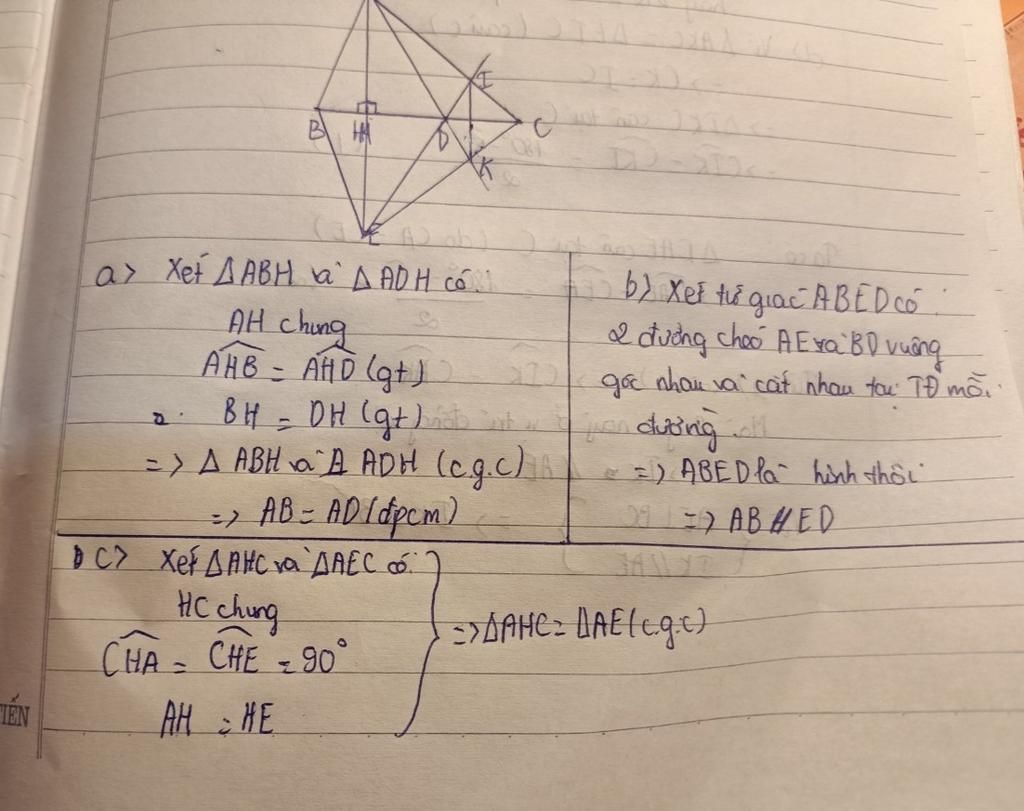 I
B
H
D
C
K
E
a> Xét ΔABH và ΔADH có:
AH chung
AHB = AHD (gt)
BH = DH (gt)
=> Δ ABH và Δ ADH (c.g.c)
=> AB = AD (đpcm)
b) Xét tứ giác ABED có
2 đường chéo AE và BD vuông
góc nhau và cắt nhau tại TĐ mỗi
đường.
=> ABED là hình thôi
=> AB // ED
c> Xét ΔAHC và ΔAEC có:
HC chung
CHA = CHE = 90°
AH = HE
=> ΔAHC = ΔAE (c.g.c)
TIẾN